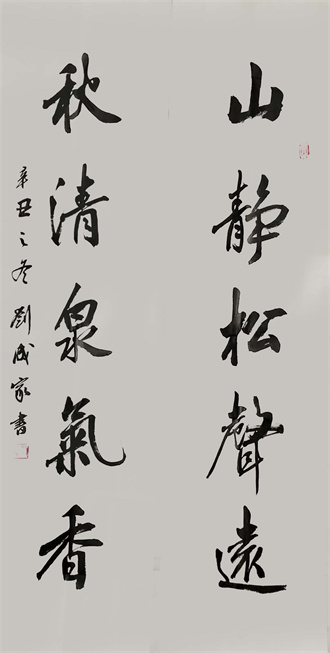 山静松聲遠
秋清泉氣香
辛丑之冬劉成家書